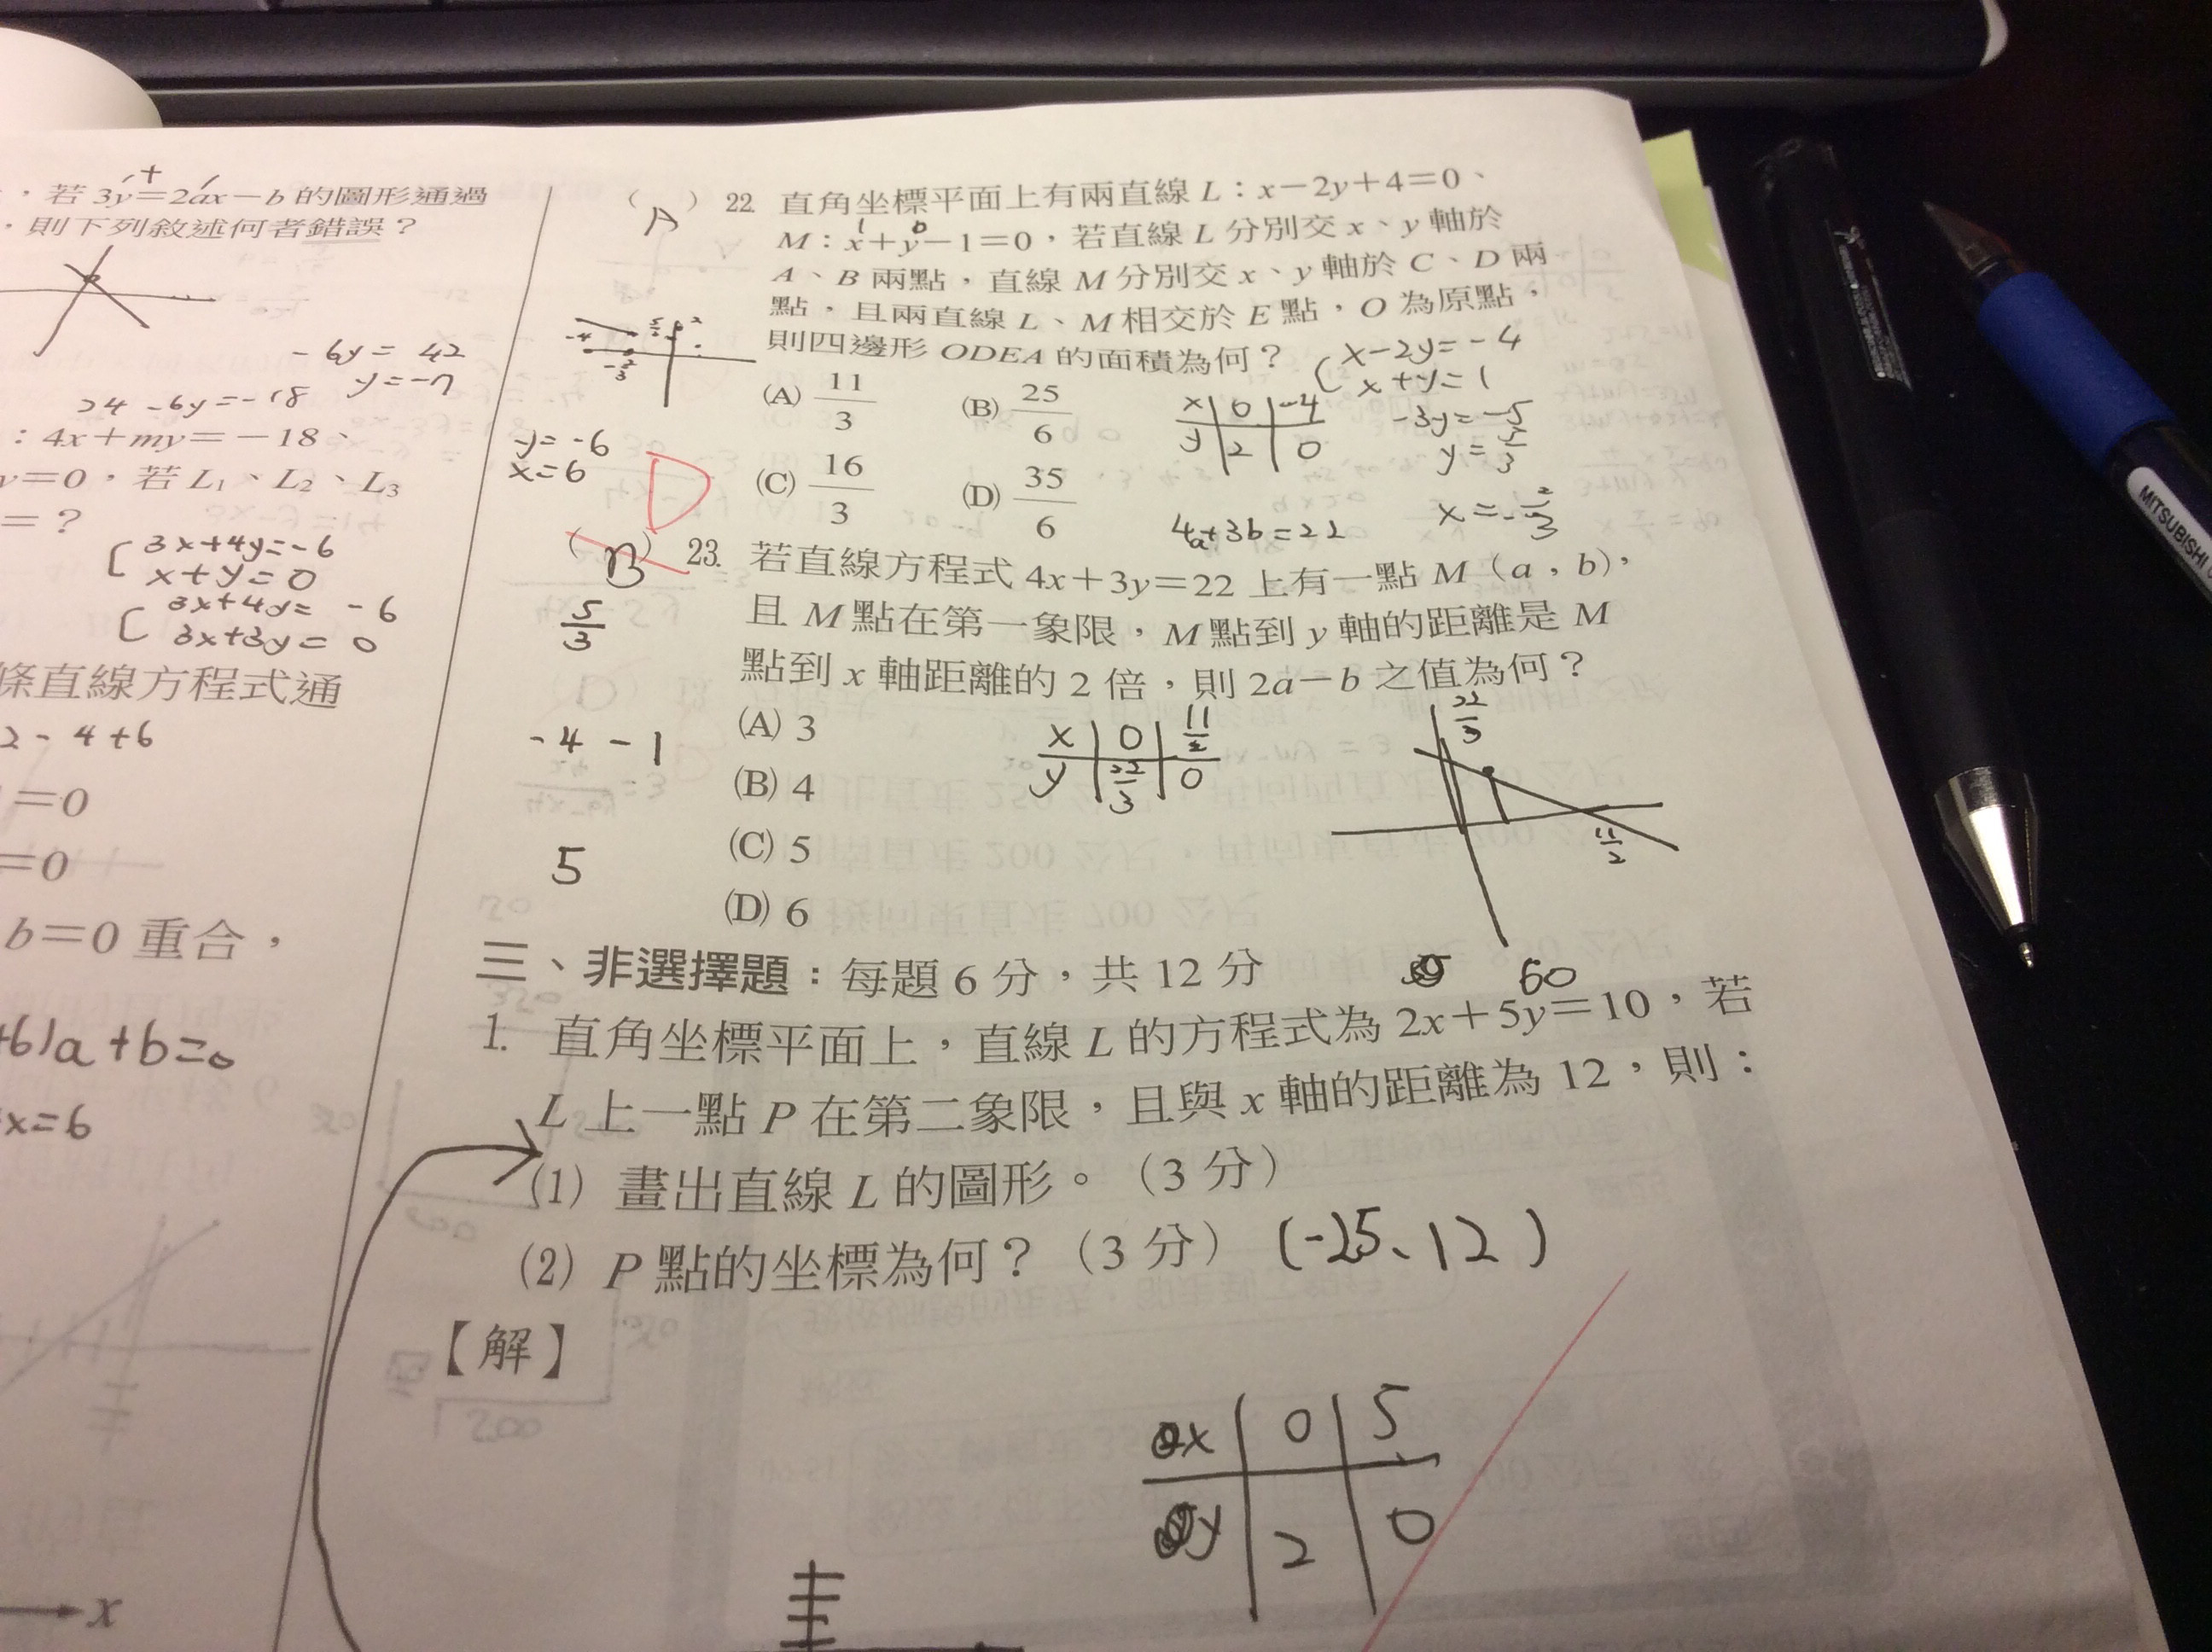 ，若 3y=2ax-b 的圖形通過
，則下列敘述何者錯誤？
-6y=42
y=-7
24-6y=-18
：4x+my=-18、
y=0，若 L₁、L₂、L₃
=？
3x+4y=-6
x+y=0
3x+4y=-6
3x+3y=0
條直線方程式通
2-4+6
=0
=0
b=0 重合，
+6)a+b=0
x=6
x
（A）22. 直角坐標平面上有兩直線 L：x-2y+4=0、
M：x+y-1=0，若直線 L 分別交 x、y 軸於
A、B 兩點，直線 M 分別交 x、y 軸於 C、D 兩
點，且兩直線 L、M 相交於 E 點，O 為原點，
則四邊形 ODEA 的面積為何？
(A) 11/3 (B) 25/6
(C) 16/3 (D) 35/6
x-2y=-4
x+y=1
-3y=-5
y=5/3
x=-2/3
x 0 -4
y 2 0
-4
-2/3
y=-6
x=6
D
4a+3b=22
（B）23. 若直線方程式 4x+3y=22 上有一點 M（a，b），
且 M 點在第一象限，M 點到 y 軸的距離是 M
點到 x 軸距離的 2 倍，則 2a-b 之值為何？
(A) 3
(B) 4
(C) 5
(D) 6
5/3
-4-1
5
x 0 11/2
y 22/3 0
22/3
11/2
三、非選擇題：每題 6 分，共 12 分
60
1. 直角坐標平面上，直線 L 的方程式為 2x+5y=10，若
L 上一點 P 在第二象限，且與 x 軸的距離為 12，則：
(1) 畫出直線 L 的圖形。（3 分）
(2) P 點的坐標為何？（3 分） (-25、12)
【解】
x 0 5
y 2 0
MITSUBISHI